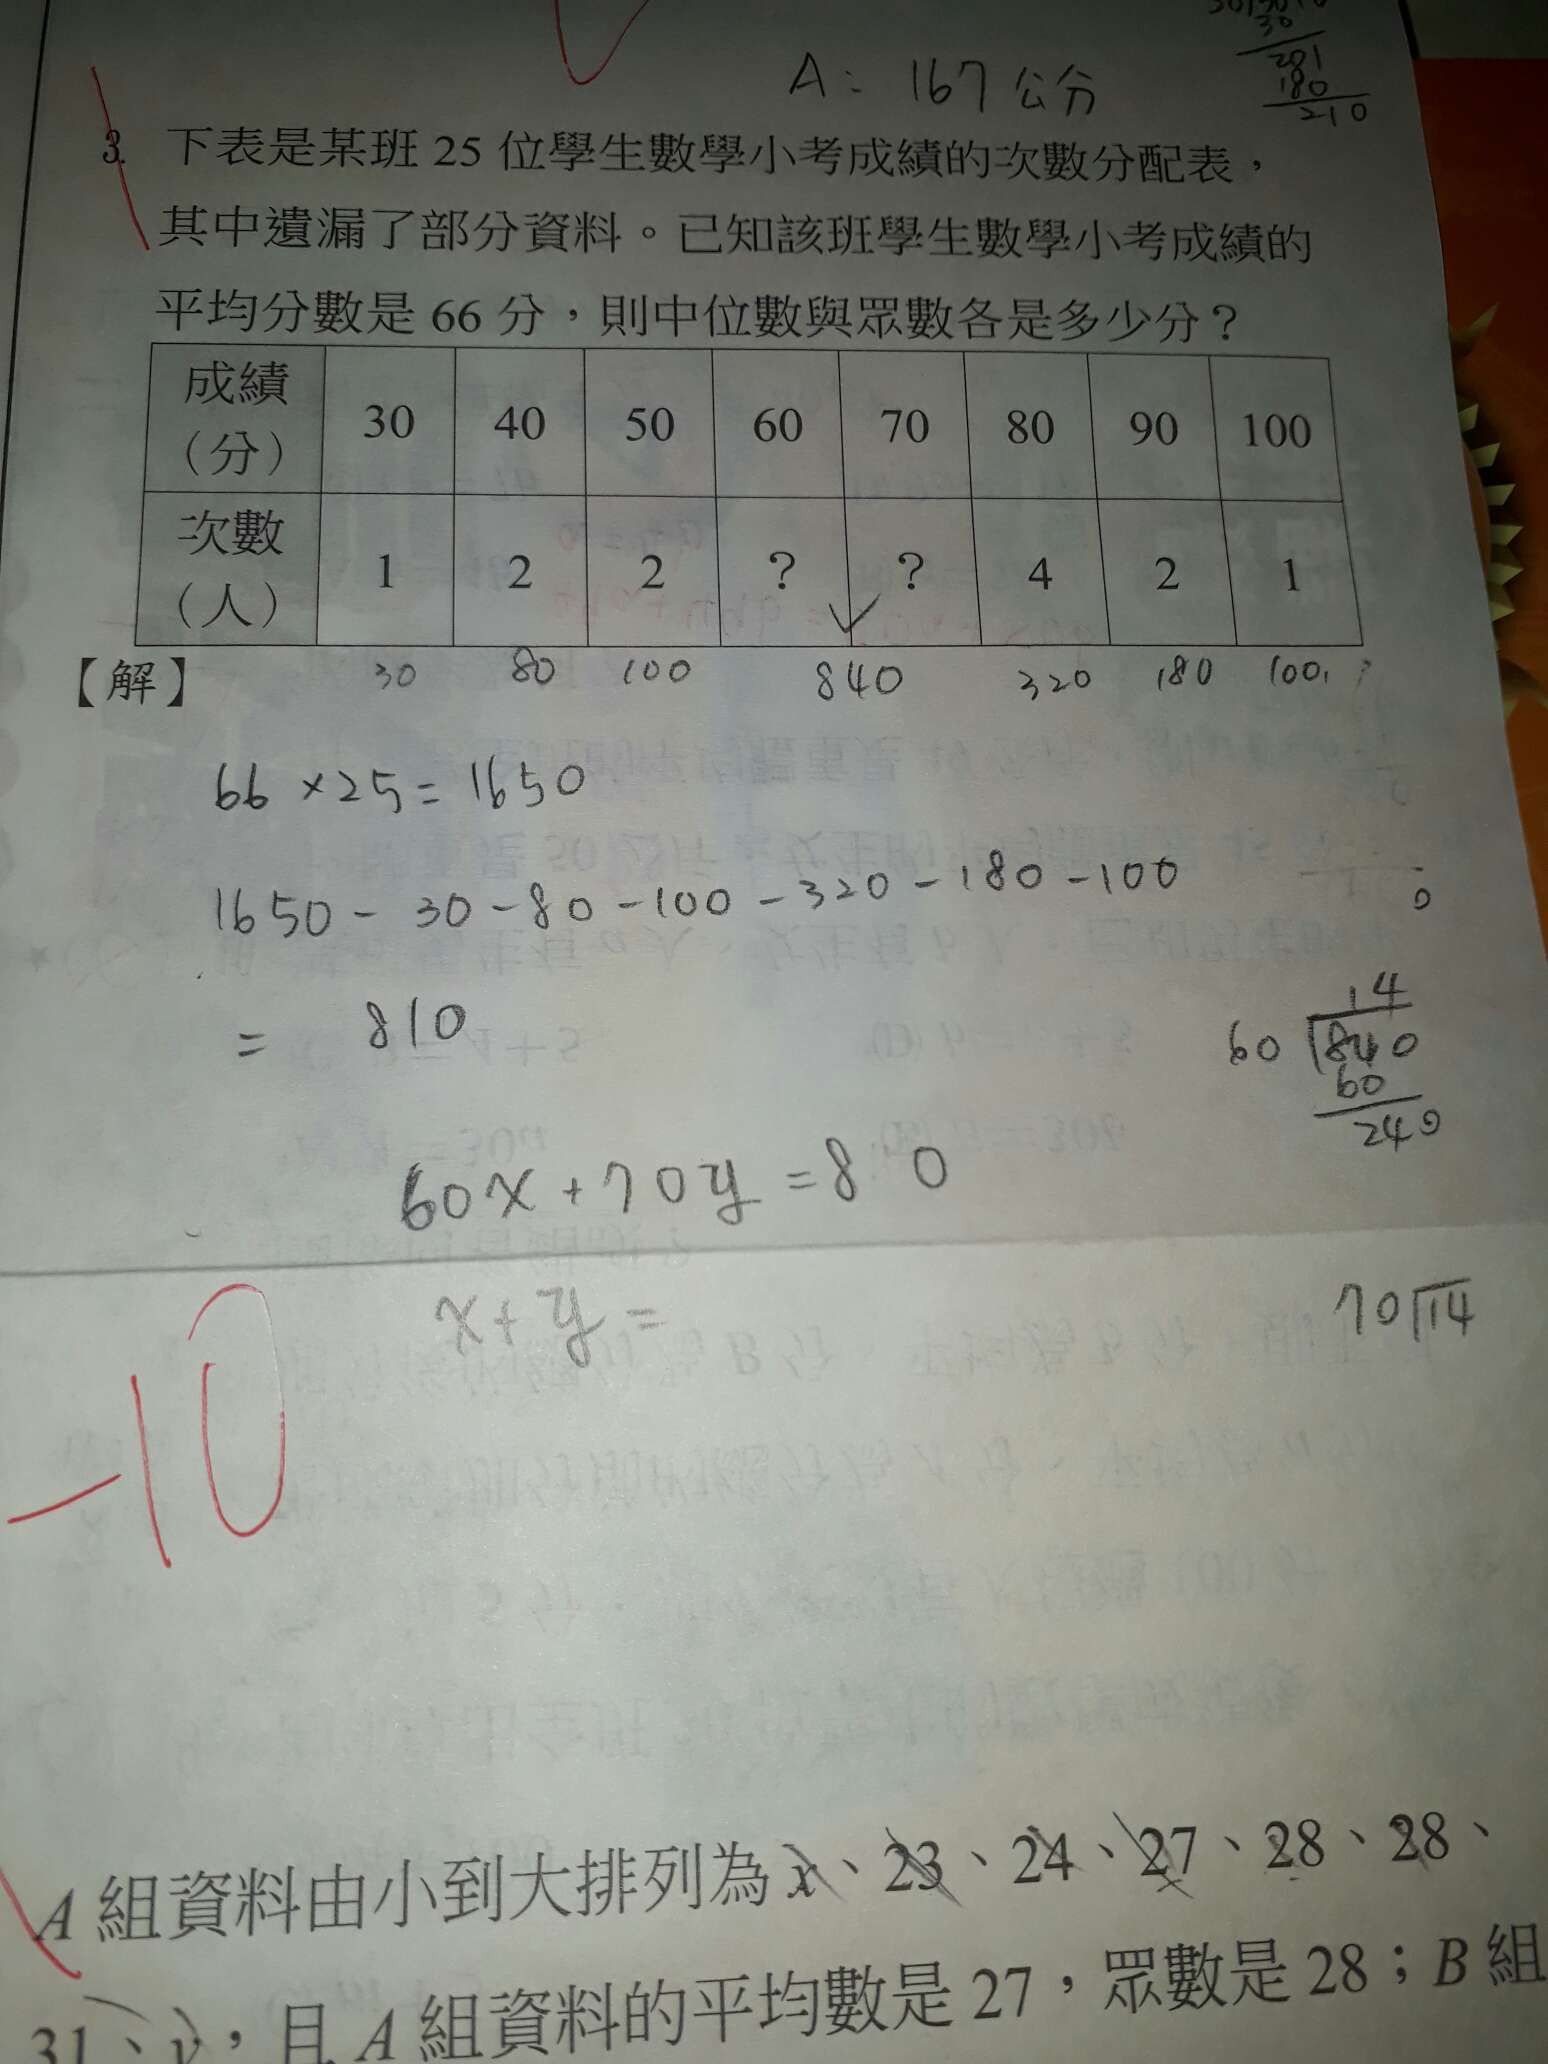 A: 167公分
30
281
180
210
3. 下表是某班 25 位學生數學小考成績的次數分配表,
其中遺漏了部分資料。已知該班學生數學小考成績的
平均分數是 66 分,則中位數與眾數各是多少分?
成績(分) 30 40 50 60 70 80 90 100
次數(人) 1 2 2 ? ? 4 2 1
【解】 30 80 100 840 320 180 100
66×25=1650
1650-30-80-100-320-180-100
= 810
14
60 840
60
240
60x+70y=8 0
x+y=
70 14
-10
A 組資料由小到大排列為 x、23、24、27、28、28、
31、y,且 A 組資料的平均數是 27,眾數是 28;B 組